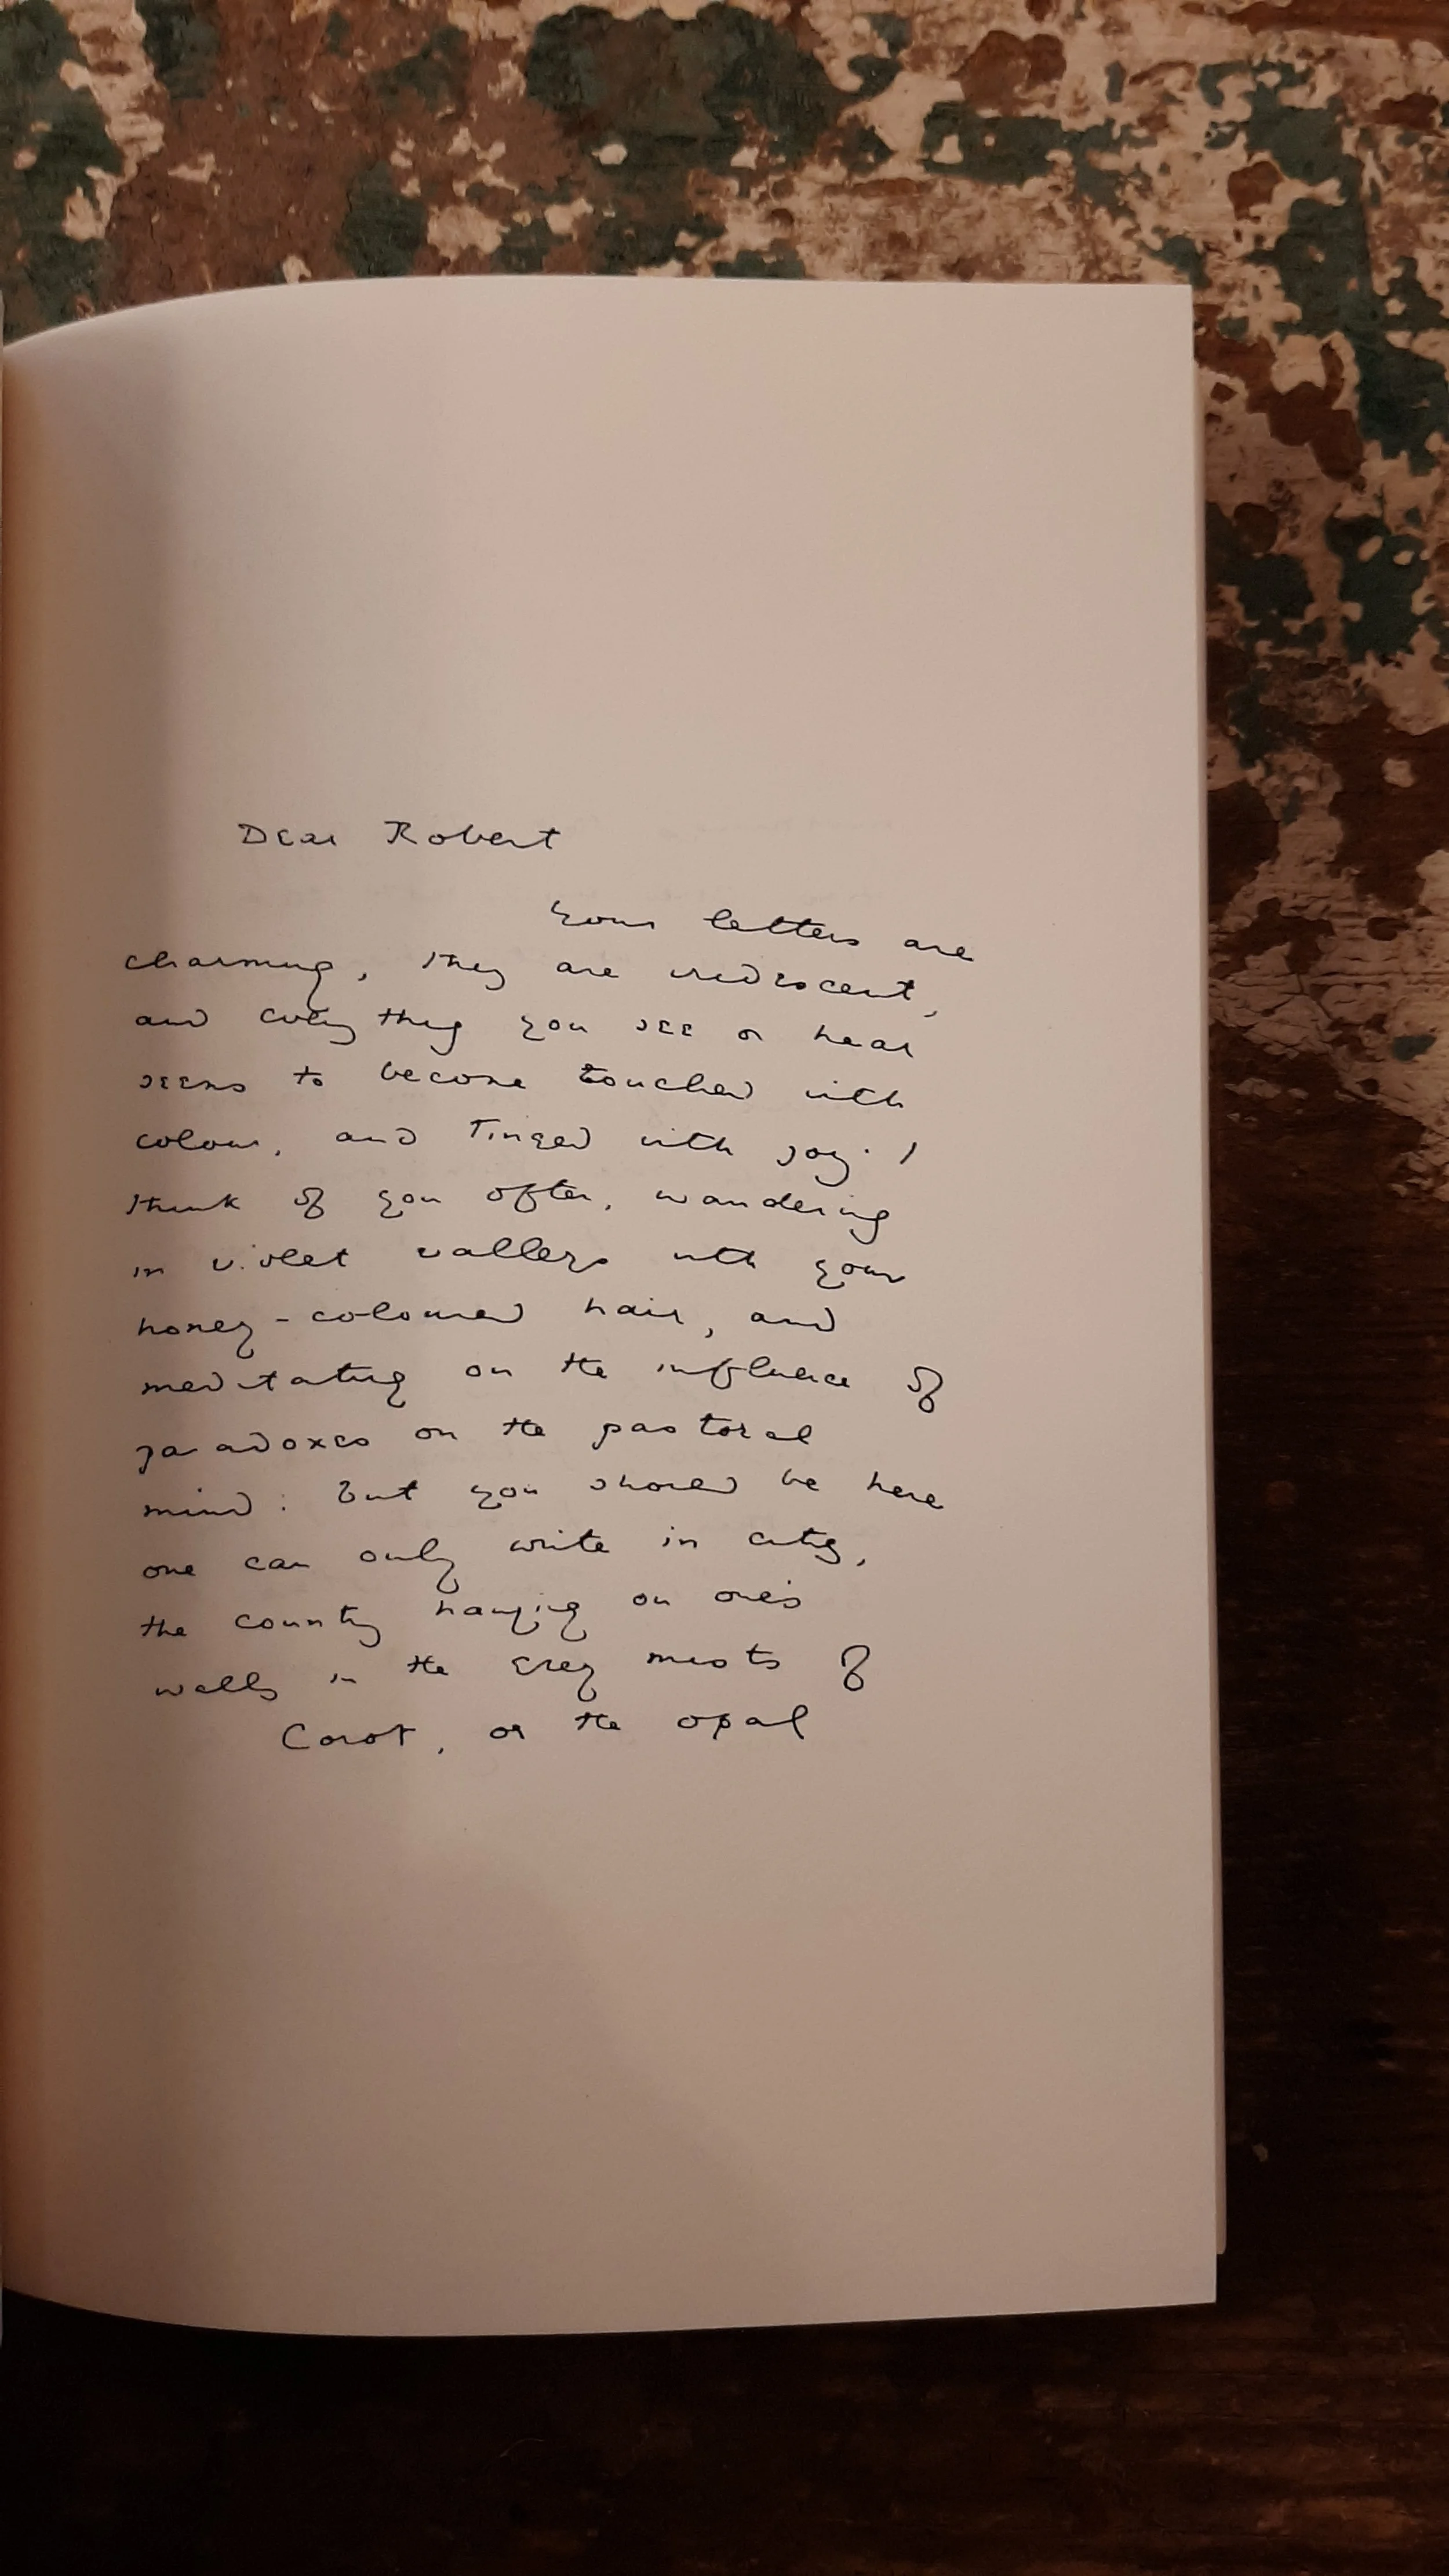 Dear Robert
Your letters are
charming, they are iridescent,
and everything you see or hear
seems to become touched with
colour, and tinged with joy. I
think of you often, wandering
in violet valleys with your
honey-coloured hair, and
meditating on the influence of
paradoxes on the pastoral
mind: but you should be here
one can only write in cities,
the country hanging on one's
walls in the grey mists of
Corot, or the opal